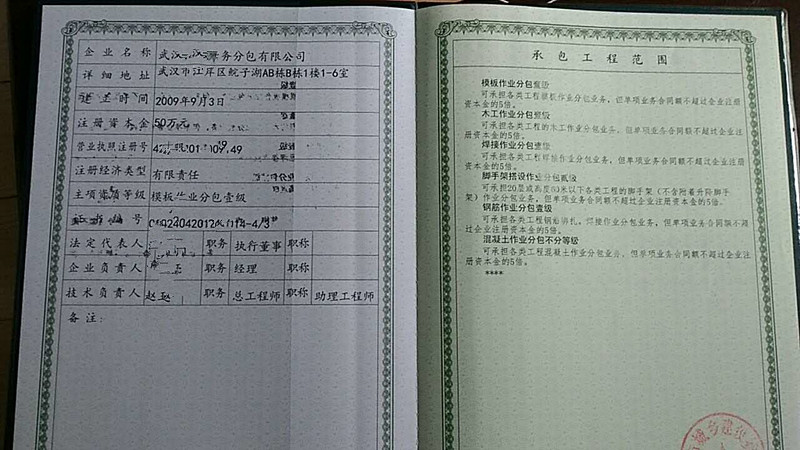 企业名称 武汉 务分包有限公司
详细地址 武汉市江岸区鲩子湖AB栋B栋1楼1-6室
建立时间 2009年9月3日
注册资本金 50万元
营业执照注册号
注册经济类型 有限责任
主项资质等级 模板作业分包壹级
证书编号
法定代表人 职务 执行董事 职称
企业负责人 职务 经理 职称
技术负责人 赵 职务 总工程师 职称 助理工程师
备注:
承包工程范围
模板作业分包壹级
可承担各类工程模板作业分包业务，但单项业务合同额不超过企业注册
资本金的5倍。
木工作业分包壹级
可承担各类工程的木工作业分包业务，但单项业务合同额不超过企业注
册资本金的5倍。
焊接作业分包壹级
可承担各类工程焊接作业分包业务，但单项业务合同额不超过企业注册
资本金的5倍。
脚手架搭设作业分包贰级
可承担20层或高度60米以下各类工程的脚手架（不含附着升降脚手
架）作业分包业务，但单项业务合同额不超过企业注册资本金的5倍。
钢筋作业分包壹级
可承担各类工程钢筋绑扎、焊接作业分包业务，但单项业务合同额不超
过企业注册资本金的5倍。
混凝土作业分包不分等级
可承担各类工程混凝土作业分包业务，但单项业务合同额不超过企业注
册资本金的5倍。
****
城乡建设